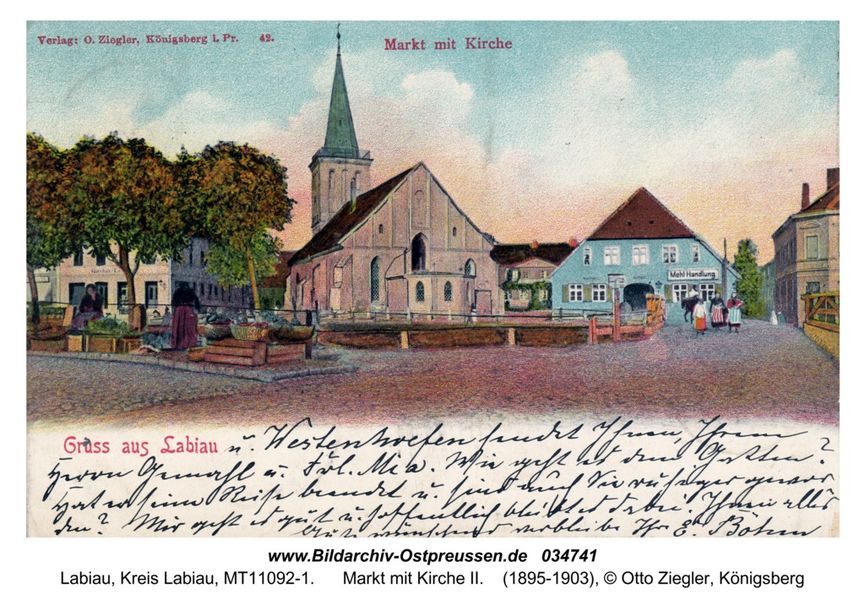 Verlag: O. Ziegler, Königsberg i. Pr. 42.
Markt mit Kirche
Mehl Handlung
Gruss aus Labiau u. Westenthoefen sendet Ihnen, Ihrem
Herrn Gemahl u. Frl. Mia. Wie geht es dem Gatten?
Hat er seine Reise beendet u. sind auch Sie ruhiger gewor
den? Mir geht es gut u. hoffentlich bleibt es dabei. Ihnen alles
Gute wünschend verbleibe Ihr E. Böhm
www.Bildarchiv-Ostpreussen.de 034741
Labiau, Kreis Labiau, MT11092-1. Markt mit Kirche II. (1895-1903), © Otto Ziegler, Königsberg